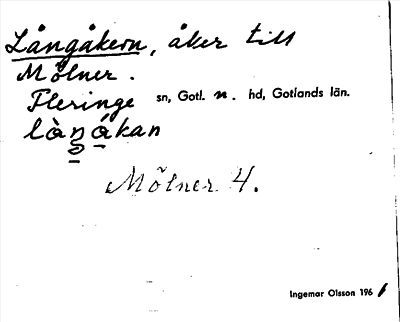 Långåkern, åker till
Mölner.
Fleringe sn, Gotl. n. hd, Gotlands län.
Mölner 4.
Ingemar Olsson 196